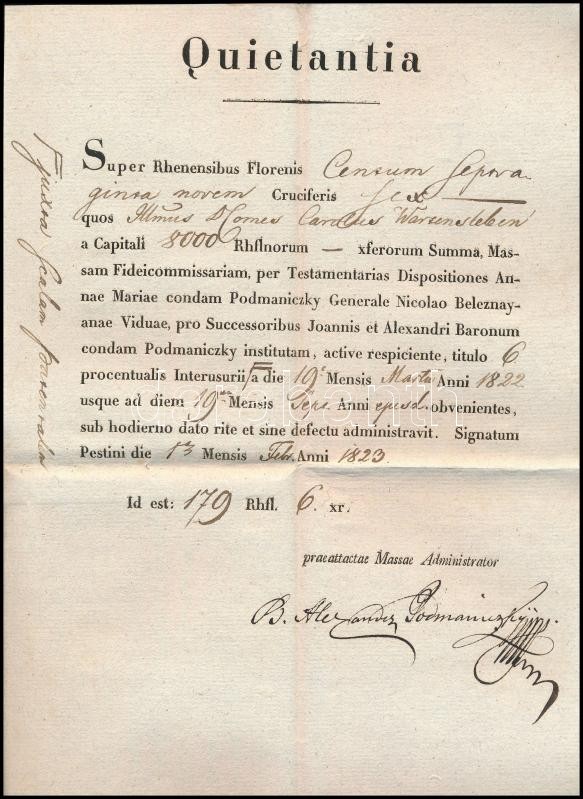 Quietantia
Super Rhenensibus Florenis Centum Septua-
ginta novem Cruciferis Sex
quos Illmus D Comes Carolus Wartensleben
a Capitali 8000 Rhflnorum — xferorum Summa, Mas-
sam Fideicommissariam, per Testamentarias Dispositiones An-
nae Mariae condam Podmaniczky Generale Nicolao Beleznay-
anae Viduae, pro Successoribus Joannis et Alexandri Baronum
condam Podmaniczky institutam, active respiciente, titulo 6
procentualis Interusurii a die 19 Mensis Martii Anni 1822
usque ad diem 19 Mensis Sept. Anni ejusd. obvenientes,
sub hodierno dato rite et sine defectu administravit. Signatum
Pestini die 1 Mensis Febr. Anni 1823.
Id est: 179 Rhfl. 6 xr.
praeattactae Massae Administrator
B. Alexander Podmaniczky
juxta Scalam